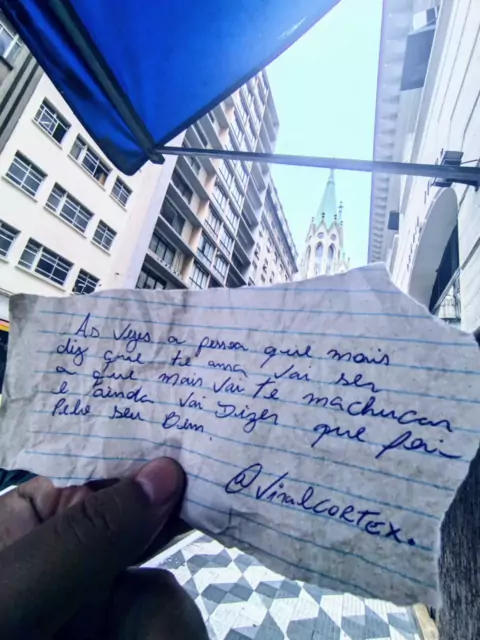 As vezes a pessoa que mais
diz que te ama vai ser
a que mais vai te machucar
e ainda vai Dizer que foi
Pelo seu Bem.
@ViralCORTEX.